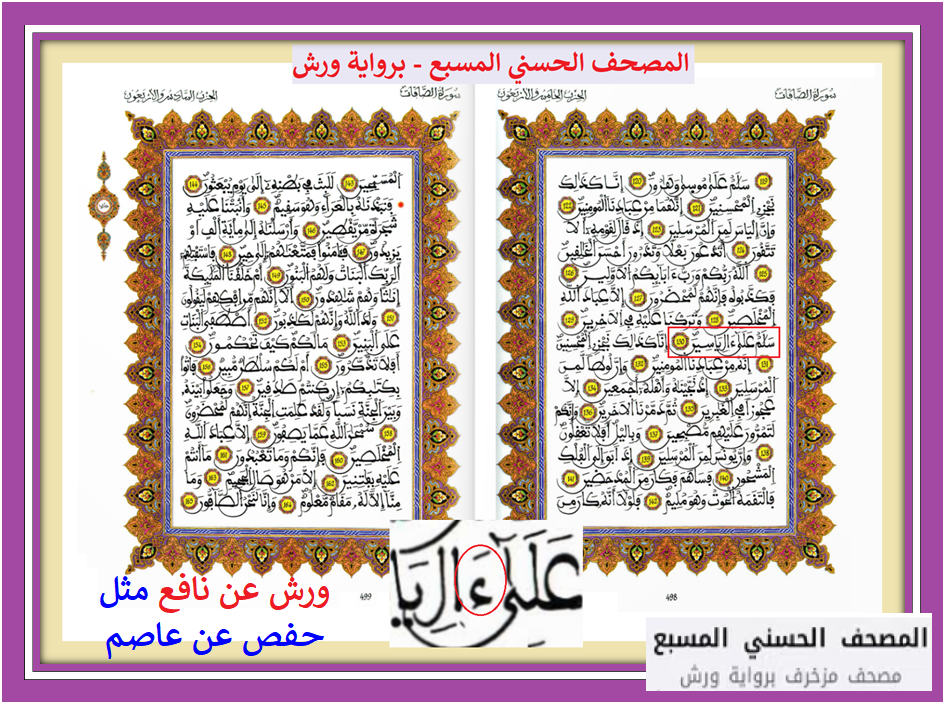 المصحف الحسني المسبع - برواية ورش
سورة الصافات
الحزب الخامس والأربعون
119 سلم على موسى وهرون 120 إنا كذلك
نجزي المحسنين 121 إنهما من عبادنا المومنين 122
وإن إلياس لمن المرسلين 123 إذ قال لقومه ألا
تتقون 124 أتدعون بعلا وتذرون أحسن الخلقين
125 الله ربكم ورب ءابايكم الاولين 126
فكذبوه فإنهم لمحضرون 127 إلا عباد الله
المخلصين 128 وتركنا عليه في الاخرين 129
سلم على ءال ياسين 130 إنا كذلك نجزي المحسنين
131 إنه من عبادنا المومنين 132 وإن لوطا لمن
المرسلين 133 إذ نجينه وأهله أجمعين 134 إلا
عجوزا في الغبرين 135 ثم دمرنا الاخرين 136 وإنكم
لتمرون عليهم مصبحين 137 وباليل أفلا تعقلون
138 وإن يونس لمن المرسلين 139 إذ ابق إلى الفلك
المشحون 140 فساهم فكان من المدحضين 141
فالتقمه الحوت وهو مليم 142 فلولا أنه كان من
498
سورة الصافات
الحزب السادس والأربعون
المسبحين 143 للبث في بطنه إلى يوم يبعثون 144
فنبذنه بالعراء وهو سقيم 145 وأنبتنا عليه
شجرة من يقطين 146 وأرسلنه إلى ماية ألف او
يزيدون 147 فئامنوا فمتعنهم إلى حين 148 فاستفتهم
ألربك البنات ولهم البنون 149 أم خلقنا الملئكة
إنثا وهم شهدون 150 ألا إنهم من افكهم ليقولون
151 ولد الله وإنهم لكذبون 152 أصطفى البنات
على البنين 153 ما لكم كيف تحكمون 154
أفلا تذكرون 155 أم لكم سلطن مبين 156 فاتوا
بكتبكم إن كنتم صدقين 157 وجعلوا بينه
وبين الجنة نسبا ولقد علمت الجنة إنهم لمحضرون
158 سبحن الله عما يصفون 159 إلا عباد الله
المخلصين 160 فإنكم وما تعبدون 161 ما أنتم
عليه بفتنين 162 إلا من هو صال الجحيم 163 وما
منا إلا له مقام معلوم 164 وإنا لنحن الصافون 165
499
على ءال يا
ورش عن نافع مثل
حفص عن عاصم
المصحف الحسني المسبع
مصحف مزخرف برواية ورش